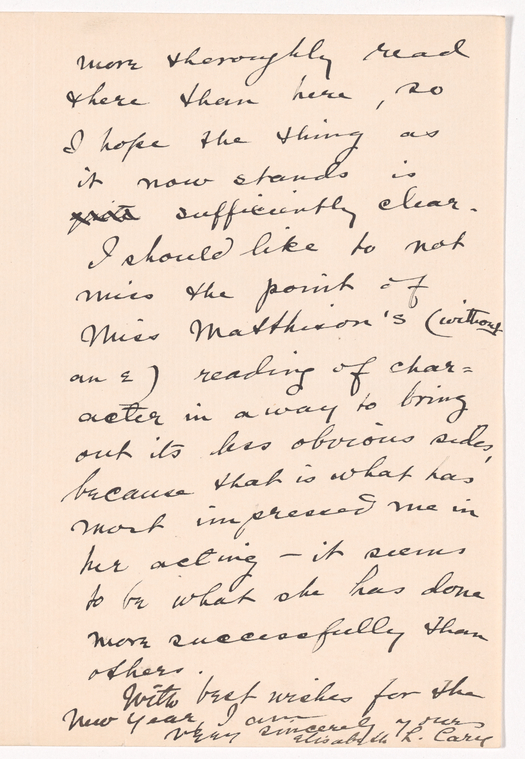 more thoroughly read
there than here, so
I hope the thing as
it now stands is
sufficiently clear.
I should like to not
miss the point of
Miss Matthison's (without
an E) reading of char=
acter in a way to bring
out its less obvious sides,
because that is what has
most impressed me in
her acting – it seems
to be what she has done
more successfully than
others.
With best wishes for the
New Year, I am
very sincerely yours
Elisabeth L. Cary